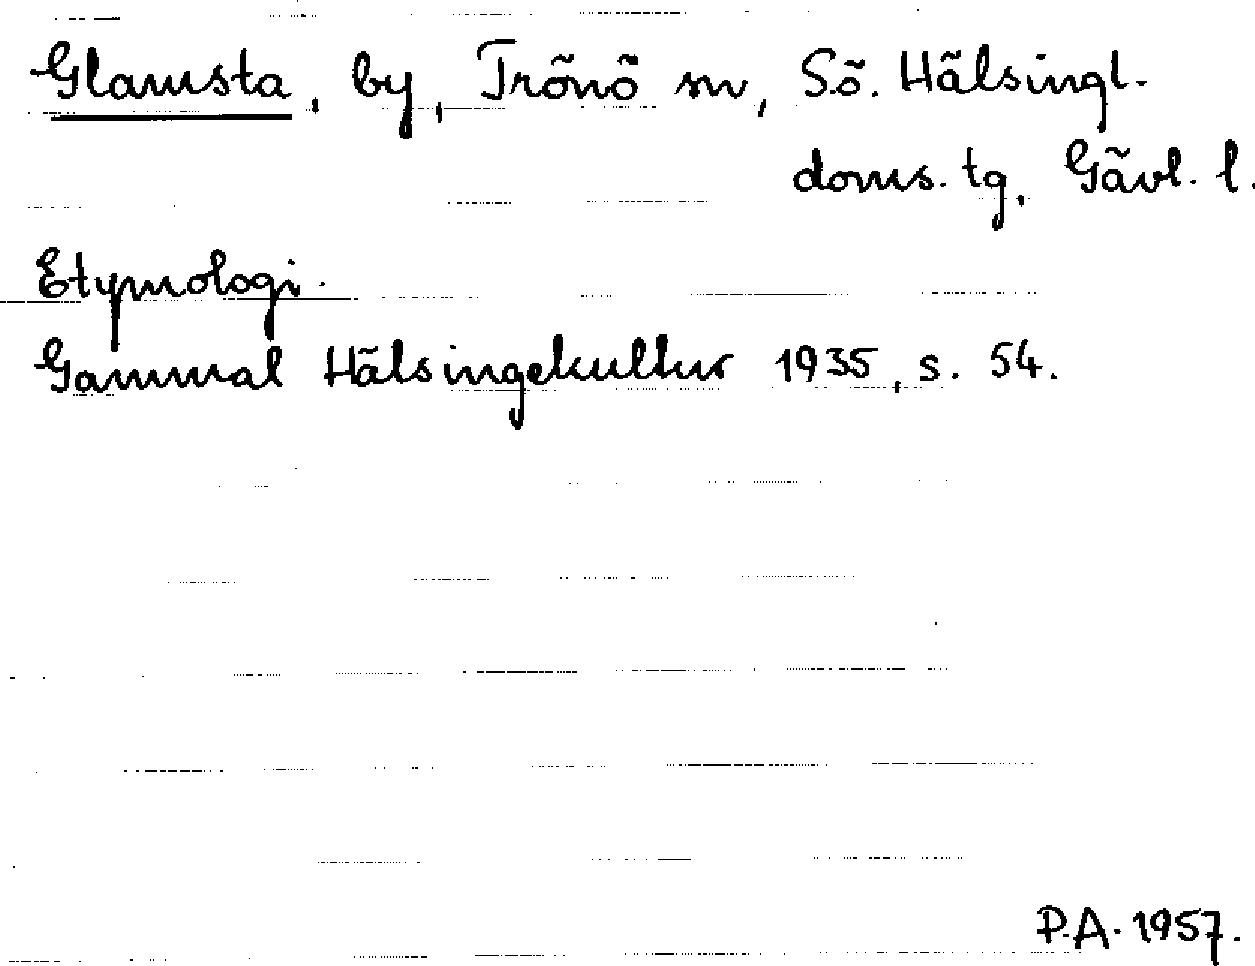 Glamsta, by, Trönö sn, Sö. Hälsingl.
doms. tg, Gävl. l.
Etymologi.
Gammal Hälsingekultur 1935, s. 54.
P.A. 1957.